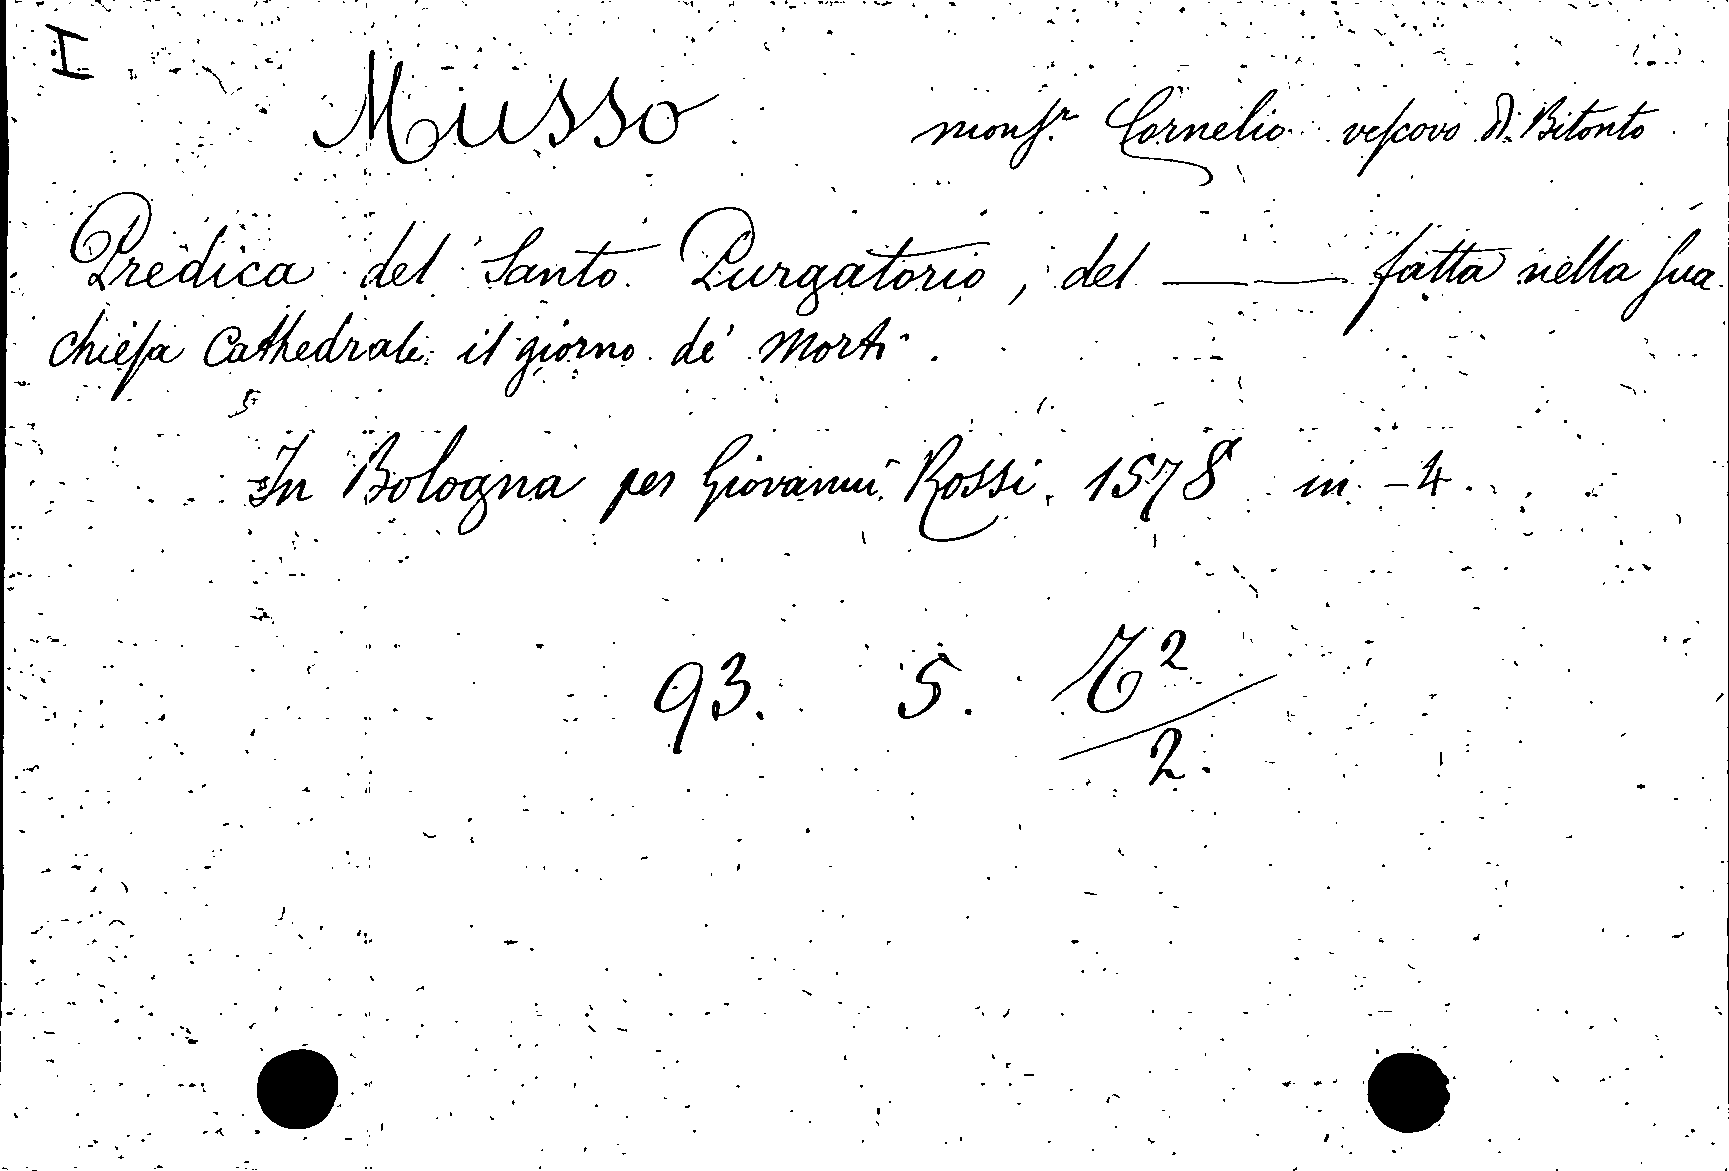 I
Musso monſ.r Cornelio veſcovo di Bitonto
Predica del Santo Purgatorio, del —— fatta nella ſua
chieſa Cathedrale il giorno de' Morti.
In Bologna per Giovanni Rossi. 1578 in-4.
93. 5. 2
2.